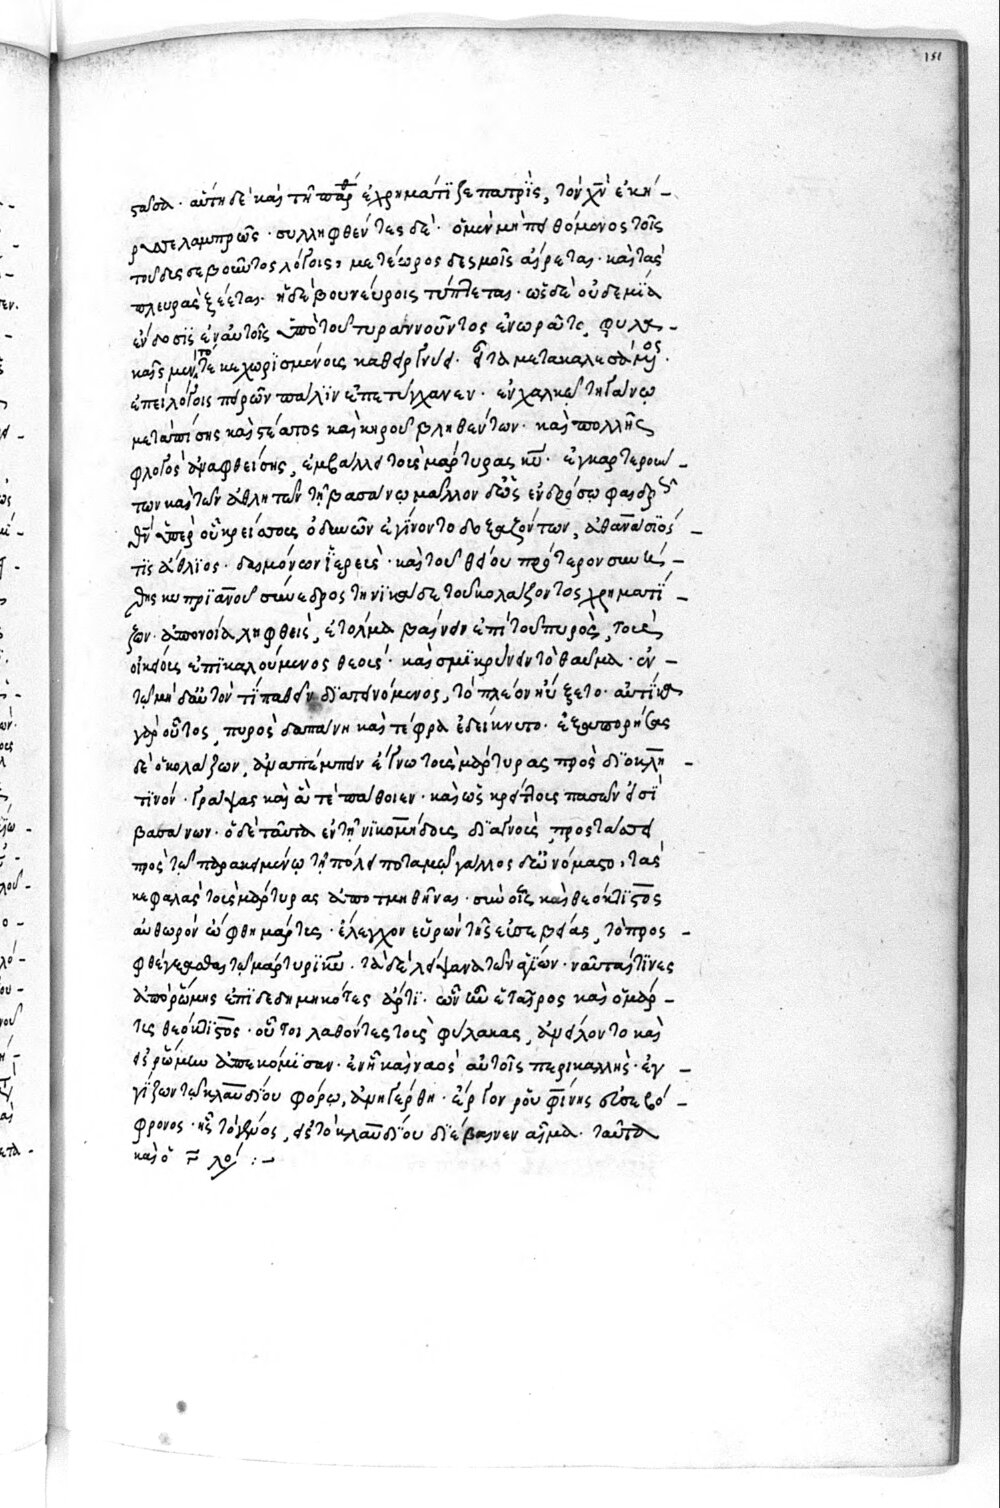 151
σταῦσα· αὕτη δὲ καὶ τῆ παρ^θ ἐχρημάτϊζε πατρὶς, τὸν χν ἐκή -
ρυττε λαμπρῶς· συλληφθέντες δὲ· ὁ μὲν μὴ πειθόμενος τοῖς
τοῦ δυσσεβοῦντος λόγοις, μετέωρος δεσμοῖς αἴρεται· καὶ τὰς
πλευρὰς ξέεται· ἡ δὲ βουνεύροις τύπτεται· ὡς δὲ οὐδεμία
ἔνδοσϊς ἐν αὐτοῖς ὑπὸ τοῦ τυραννοῦντος ἐνωρᾶτο, φυλα -
καῖς μὲν τότε κεχωρϊσμένοις καθείργνυσι· εἶτα μετακαλεσάμενος·
ἐπεὶ λόγοις πειρῶν πάλϊν ἀπετύγχανεν· ἐν χαλκῷ τηγάνῳ
μετὰ πίσης καὶ στέατος καὶ κηροῦ βληθέντων· καὶ πολλῆς
φλογὸς ἀναφθείσης, ἐμβάλλει τοὺς μάρτυρας κυ· ἐγκαρτερούν -
των καὶ τῶν ἀθλητῶν τῆ βασάνῳ μᾶλλον δὲ ὡς ἐν δρόσῳ φαιδρῶς
θν ὑπὲρ οὗ κρείττους ὀδυνῶν ἐγίνοντο δοξαζόντων, ἀθανάσϊός
τϊς ἄθλϊος· δαιμόνων ἱερεὺς· καὶ τοῦ θείου πρότερον συνή -
θης κυπρϊανοῦ σύνεδρος τηνϊκαῦτα τοῦ κολάζοντος χρηματί -
ζων· ἀπονοία ληφθεὶς, ἐτόλμα βαίνειν ἐπὶ τοῦ πυρὸς, τοὺς
οἰκείους ἐπϊκαλούμενος θεούς· καὶ σμϊκρύνειν τὸ θαῦμα· ἐν -
τῷ μηδ' αὐτόν τϊ παθεῖν διαπειρώμενος, τὸ πλέον ηὔξετο· αὐτίκα
γὰρ οὗτος, πυρὸς δαπάνη καὶ τέφρα ἐδείκνυτο· ἐξαπορήσας
δὲ ὁ κολάζων, ἀναπέμπειν ἔγνω τοὺς μάρτυρας πρὸς δϊοκλη -
τϊανόν· γράψας καὶ ἅ τε πάθοιεν· καὶ ὡς κρείττους πασῶν εἰσϊ
βασάνων· ὁ δὲ ταῦτα ἐν τῆ νϊκομήδους δϊαγνοὺς, προστάσσει
πρὸς τῷ παρακειμένῳ τῆ πόλει ποταμῷ γάλλος δὲ ὠνόμασται, τὰς
κεφαλὰς τοὺς μάρτυρας ἀποτμηθῆναι· σὺν οἷς καὶ θεόκτϊστος
αὐθωρὸν ὤφθη μάρτυς· ἔλεγχον εὑρὼν τῆς εὐσεβείας, τὸ προς -
φθέγξασθαι τῷ μάρτυρϊ κυ. τὰ δὲ λείψανα τῶν ἁγίων· ναῦταί τϊνες
ἀπὸ ῥώμης ἐπϊδεδημηκότες ἄρτϊ· ὧν ἦν ἑταῖρος καὶ ὁ μάρ -
τυς θεόκτϊστος· οὗτοι λαθόντες τοὺς φύλακας, ἀνείλοντο καὶ
εἰς ῥώμην ἀπεκόμϊσαν· ἐν ἧ καὶ ναὸς αὐτοῖς περικαλλὴς· ἐγ -
γίζων τῷ κλαυδϊου φόρῳ, ἀνηγέρθη· ἔργον ῥουφίνης εὐσεβό -
φρονος· ἧς τὸ γένος, εἰς τὸ κλαυδϊου δϊέβαινεν αἷμα· ταῦτα
καὶ ὁ π λο :-